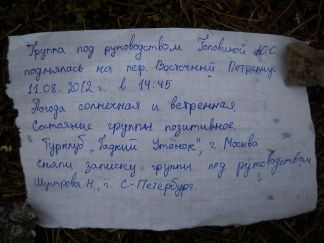 Группа под руководством Головиной Ю.С.
поднялась на пер. Восточный Петрелиус
11.08.2012 г. в 14:45
Погода солнечная и ветренная
Состояние группы позитивное.
Турклуб "Гадкий Утёнок", г. Москва
сняли записку группы под руководством
Шустрова Н., г. С-Петербург.